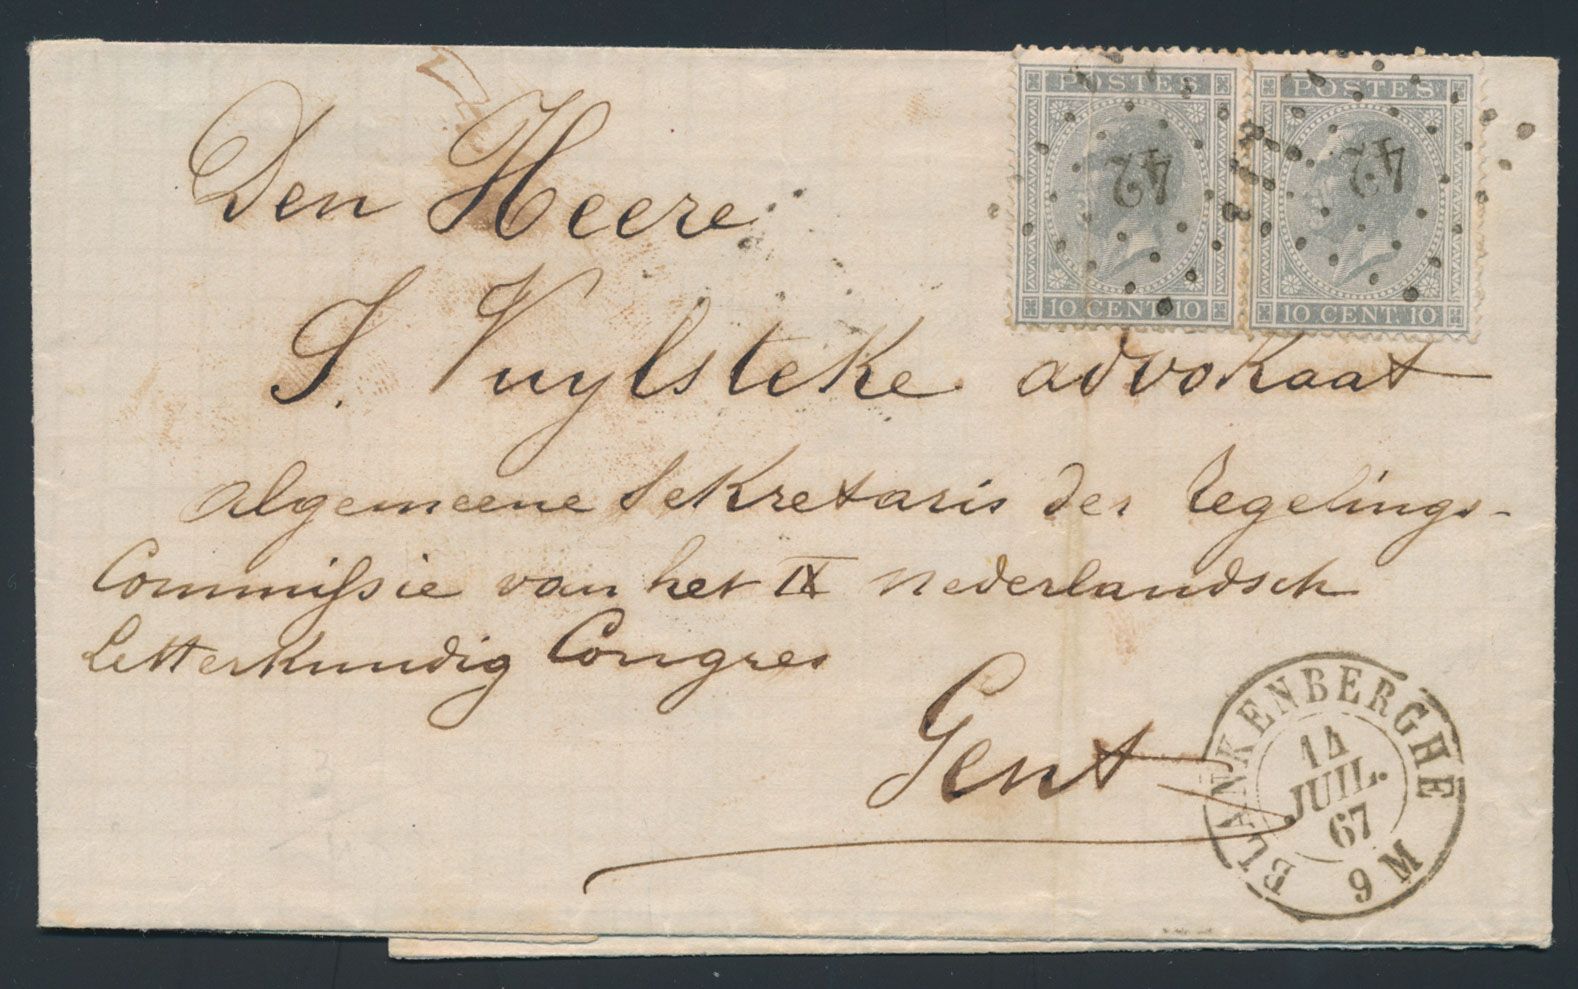 POSTES POSTES
42 42
10 CENT. 10 10 CENT. 10
Den Heere
J. Vuylsteke advokaat
algemeene Sekretaris der regelings-
Commissie van het IX nederlandsch
Letterkundig Congres
Gent
BLANKENBERGHE
14
JUIL.
67
9 M